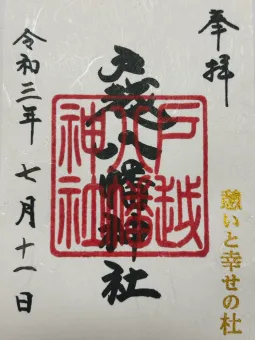 奉拝
戸越八幡神社
戸越八幡神社
令和三年七月十一日
憩いと幸せの杜